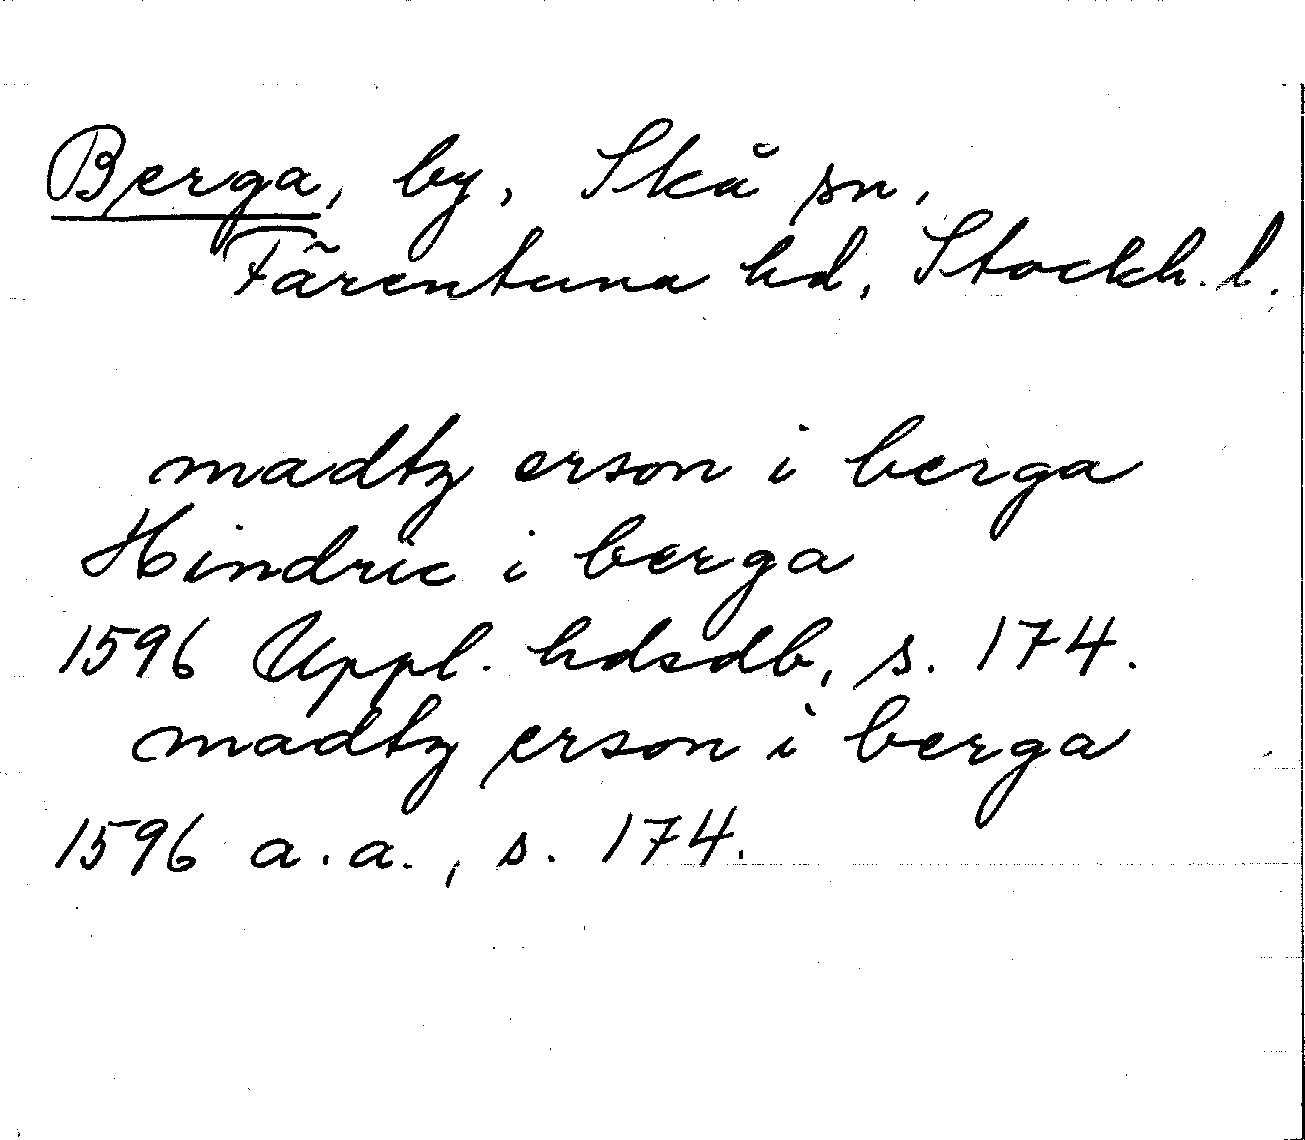 Berga, by, Skå sn,
Färentuna hd, Stockh. l.
madtz erson i berga
Hindric i berga
1596 Uppl. hdsdb, s. 174.
madtz erson i berga
1596 a.a., s. 174.